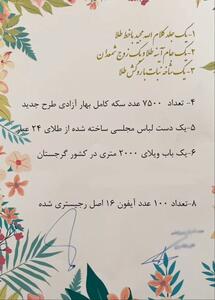 ۱-یک جلد کلام الله مجید با خط طلا
۲-یک جام آینه طلا و یک زوج شمعدان
۳-یک شاخه نبات با روکش طلا
۴- تعداد ۷۵۰۰ عدد سکه کامل بهار آزادی طرح جدید
۵-یک دست لباس مجلسی ساخته شده از طلای ۲۴ عیار
۶-یک باب ویلای ۲۰۰۰ متری در کشور گرجستان
۸-تعداد ۱۰۰ عدد آیفون ۱۶ اصل رجیستری شده